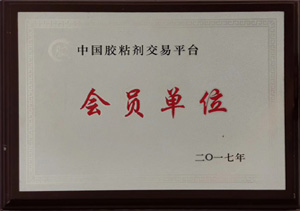 中国胶粘剂交易平台
会员单位
二〇一七年